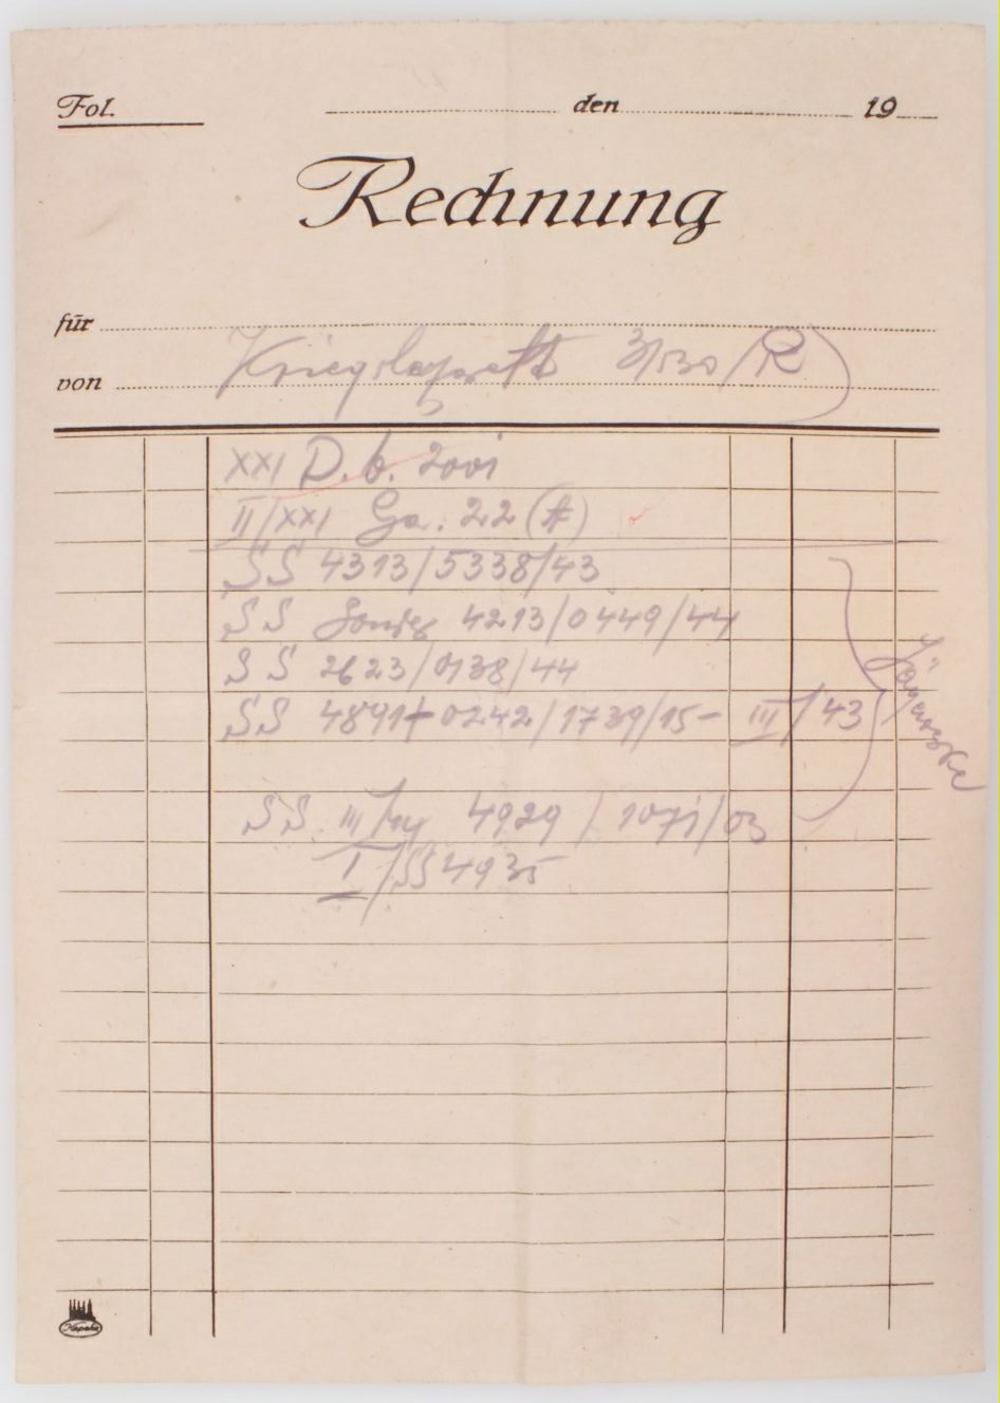 Fol. den 19
Rechnung
für
von 3/530/R
XXI D. b. 2001
II/XXI Ga. 22 (A)
SS 4313/5338/43
SS 4213/0449/44
SS 2623/0138/44
SS 4891+0242/1739/15- III/43
SS III/ 4929 / 1071/03
I/SS 4935